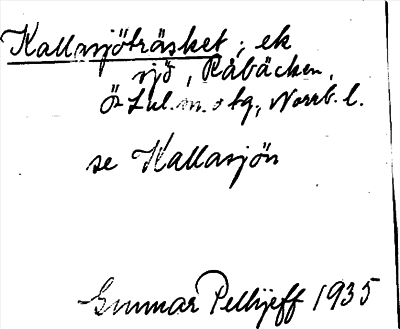 Kallasjöträsket, ek
sjö, Råbäcken,
Ö Lul. m. o tg, Norrb. l.
se Kallasjön
Gunnar Pellijeff 1935